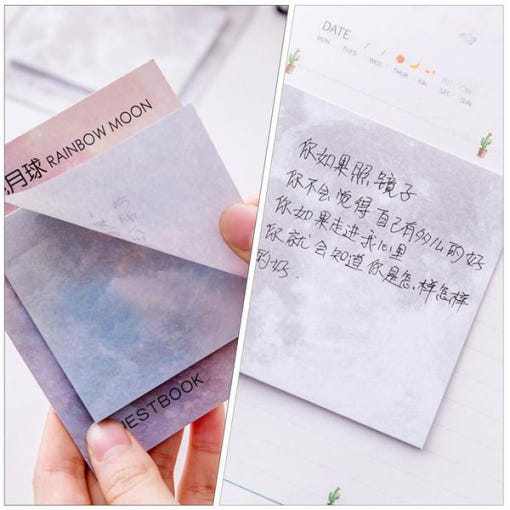 月球 RAINBOW MOON
ESTBOOK
DATE / /
MON TUES WED THUR FRI SAT SUN
你如果照镜子
你不会觉得自己有99%的好
你如果走进我心里
你就会知道你是怎样怎样
的好.